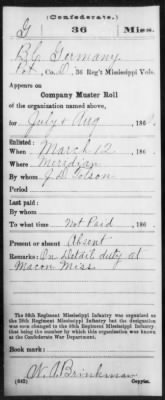 (Confederate.)
G 36 Miss.
B.C. Germany
Pvt, Co. D, 36 Reg't Mississippi Vols.
Appears on
Company Muster Roll
of the organization named above,
for July & Aug, 186
Enlisted:
When March 12, 186
Where Meridian
By whom J.D. Tolson
Period
Last paid:
By whom
To what time Not Paid, 186
Present or absent Absent
Remarks: On Detail duty at
Macon Miss.
The 36th Regiment Mississippi Infantry was organized as
the 36th Regiment Mississippi Infantry
being the number by which this organization was known at
the Confederate War Department.
Book mark:
W. A. Brinkman
(642) Copyist.